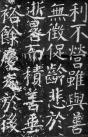 利不營雖與善
無徵促齡悲於
逝暑而積善垂
裕餘慶於後